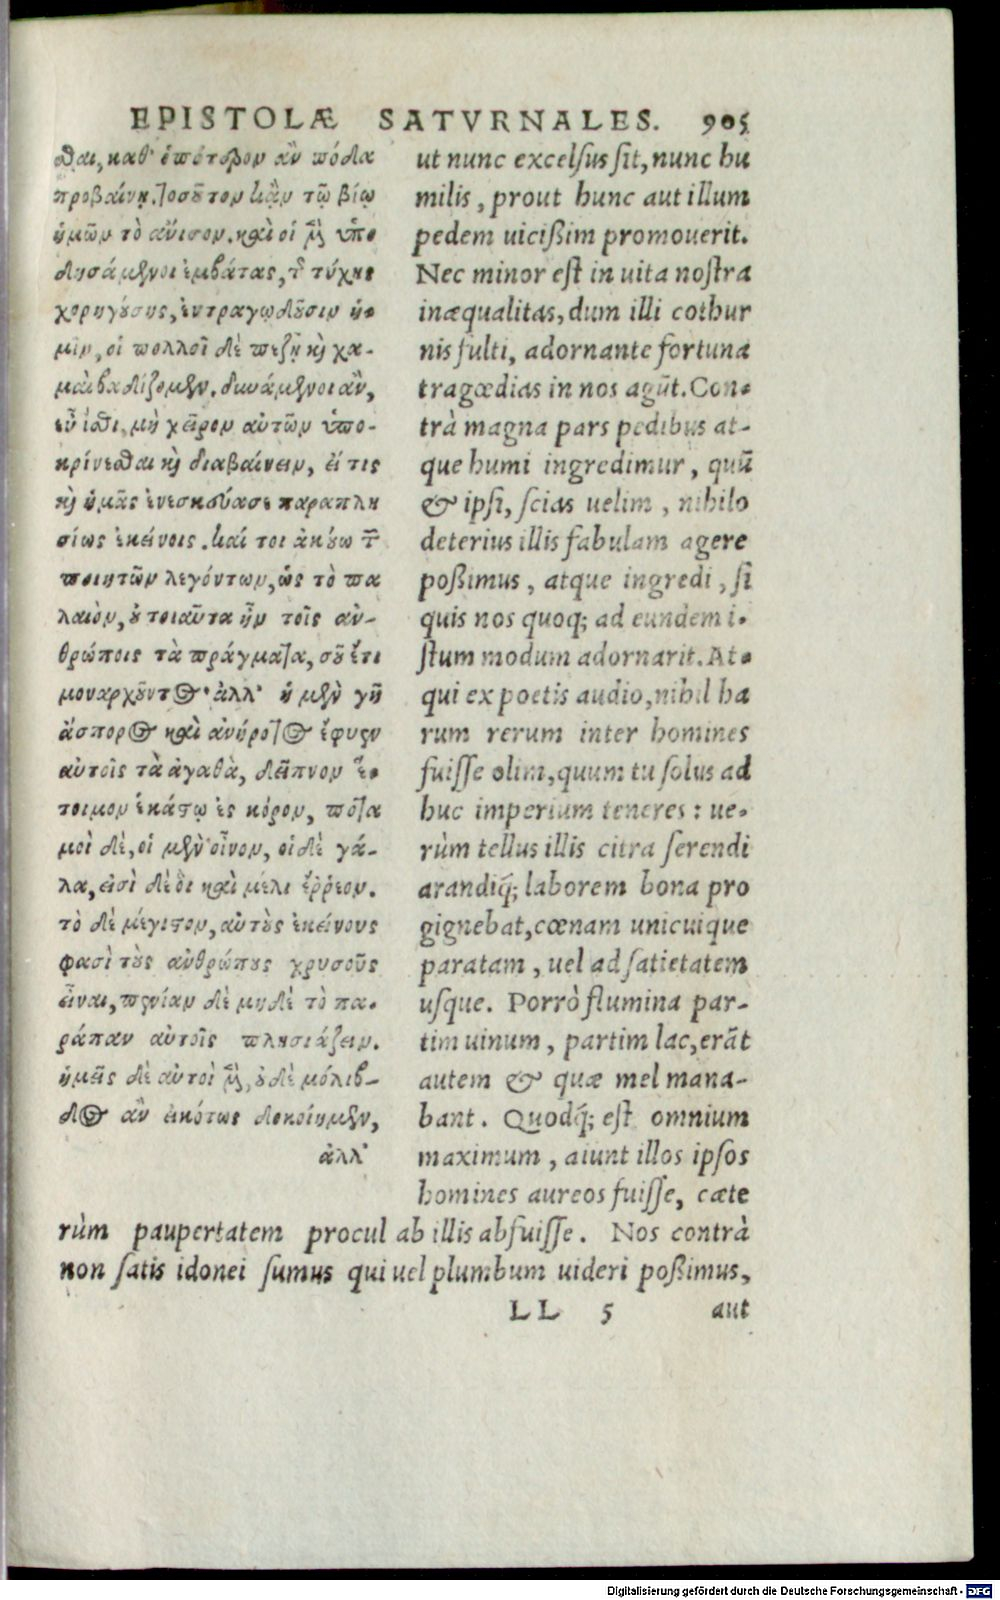 EPISTOLÆ SATVRNALES. 905
σθαι, καθ' ὁπότερον ἂν πόδα
προβαίνῃ. τοσοῦτον κἀν τῷ βίῳ
ἡμῶν τὸ ἄνισον. καὶ οἱ μὲν ὑπο
δησάμενοι ἐμβάτας, τῆς τύχης
χορηγούσης, ἐντραγῳδοῦσιν ἡ-
μῖν, οἱ πολλοὶ δὲ πεζῇ καὶ χα-
μαὶ βαδίζομεν. δυνάμενοι ἂν,
εὖ ἴσθι, μὴ χεῖρον αὐτῶν ὑπο-
κρίνεσθαι καὶ διαβαίνειν, εἴ τις
καὶ ἡμᾶς ἐνεσκεύασε παραπλη
σίως ἐκείνοις. καί τοι ἀκούω τῶν
ποιητῶν λεγόντων, ὡς τὸ πα
λαιὸν, οὐ τοιαῦτα ἦν τοῖς ἀν-
θρώποις τὰ πράγματα, σοῦ ἔτι
μοναρχοῦντος· ἀλλ' ἡ μὲν γῆ
ἄσπορος καὶ ἀνήροτος ἔφυεν
αὐτοῖς τὰ ἀγαθὰ, δεῖπνον ἕ-
τοιμον ἑκάστῳ ἐς κόρον, ποτα
μοὶ δὲ, οἱ μὲν οἶνον, οἱ δὲ γά-
λα, εἰσὶ δὲ οἳ καὶ μέλι ἔῤῥεον.
τὸ δὲ μέγιστον, αὐτοὺς ἐκείνους
φασὶ τοὺς ἀνθρώπους χρυσοῦς
εἶναι, πενίαν δὲ μηδὲ τὸ πα-
ράπαν αὐτοῖς πλησιάζειν.
ἡμεῖς δὲ αὐτοὶ μὲν, οὐδὲ μόλιβ-
δος ἂν εἰκότως δοκοίημεν,
ἀλλ'
ut nunc excelsus sit, nunc hu
milis, prout hunc aut illum
pedem uicißim promouerit.
Nec minor est in uita nostra
inæqualitas, dum illi cothur
nis fulti, adornante fortuna
tragœdias in nos agūt. Con-
trà magna pars pedibus at-
que humi ingredimur, quū
& ipsi, scias uelim, nihilo
deterius illis fabulam agere
poßimus, atque ingredi, si
quis nos quoq; ad eundem i-
stum modum adornarit. At-
qui ex poetis audio, nihil ha
rum rerum inter homines
fuisse olim, quum tu solus ad
huc imperium teneres: ue-
rùm tellus illis citra serendi
arandiq́; laborem bona pro
gignebat, cœnam unicuique
paratam, uel ad satietatem
usque. Porrò flumina par-
tim uinum, partim lac, erāt
autem & quæ mel mana-
bant. Quodq́; est omnium
maximum, aiunt illos ipsos
homines aureos fuisse, cæte
rùm paupertatem procul ab illis abfuisse. Nos contrà
non satis idonei sumus qui uel plumbum uideri poßimus,
LL 5 aut
Digitalisierung gefördert durch die Deutsche Forschungsgemeinschaft - DFG